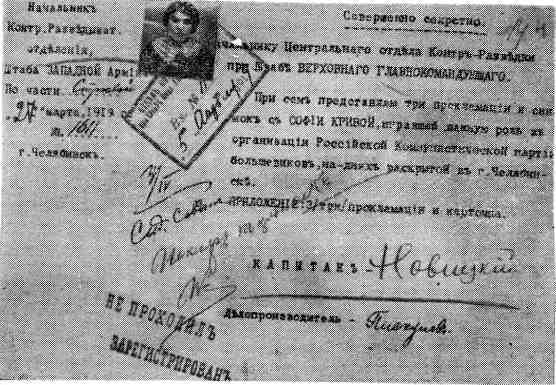 Начальникъ
Контр.Развѣдыват.
отдѣленія,
Штаба ЗАПАДНОЙ Арміи
По части
"27" марта, 1919
№.
г.Челябинск.
Совершенно секретно.
Начальнику Центральнаго отдѣла Контръ-Развѣдки
при Штабѣ ВЕРХОВНАГО ГЛАВНОКОМАНДУЮЩАГО.
При семъ представляю три прокламаціи и сни-
мокъ съ СОФІИ КРИВОЙ, игравшей важную роль въ
организаціи Россійской Коммунистической партіи
большевиков, на-днях раскрытой в г.Челябин-
скѣ.
ПРИЛОЖЕНІЕ: 3/три/прокламаціи и карточка.
КАПИТАНЪ - Новицкій
Дѣлопроизводитель -
НЕ ПРОХОДИЛЪ
ЗАРЕГИСТРИРОВАНЪ